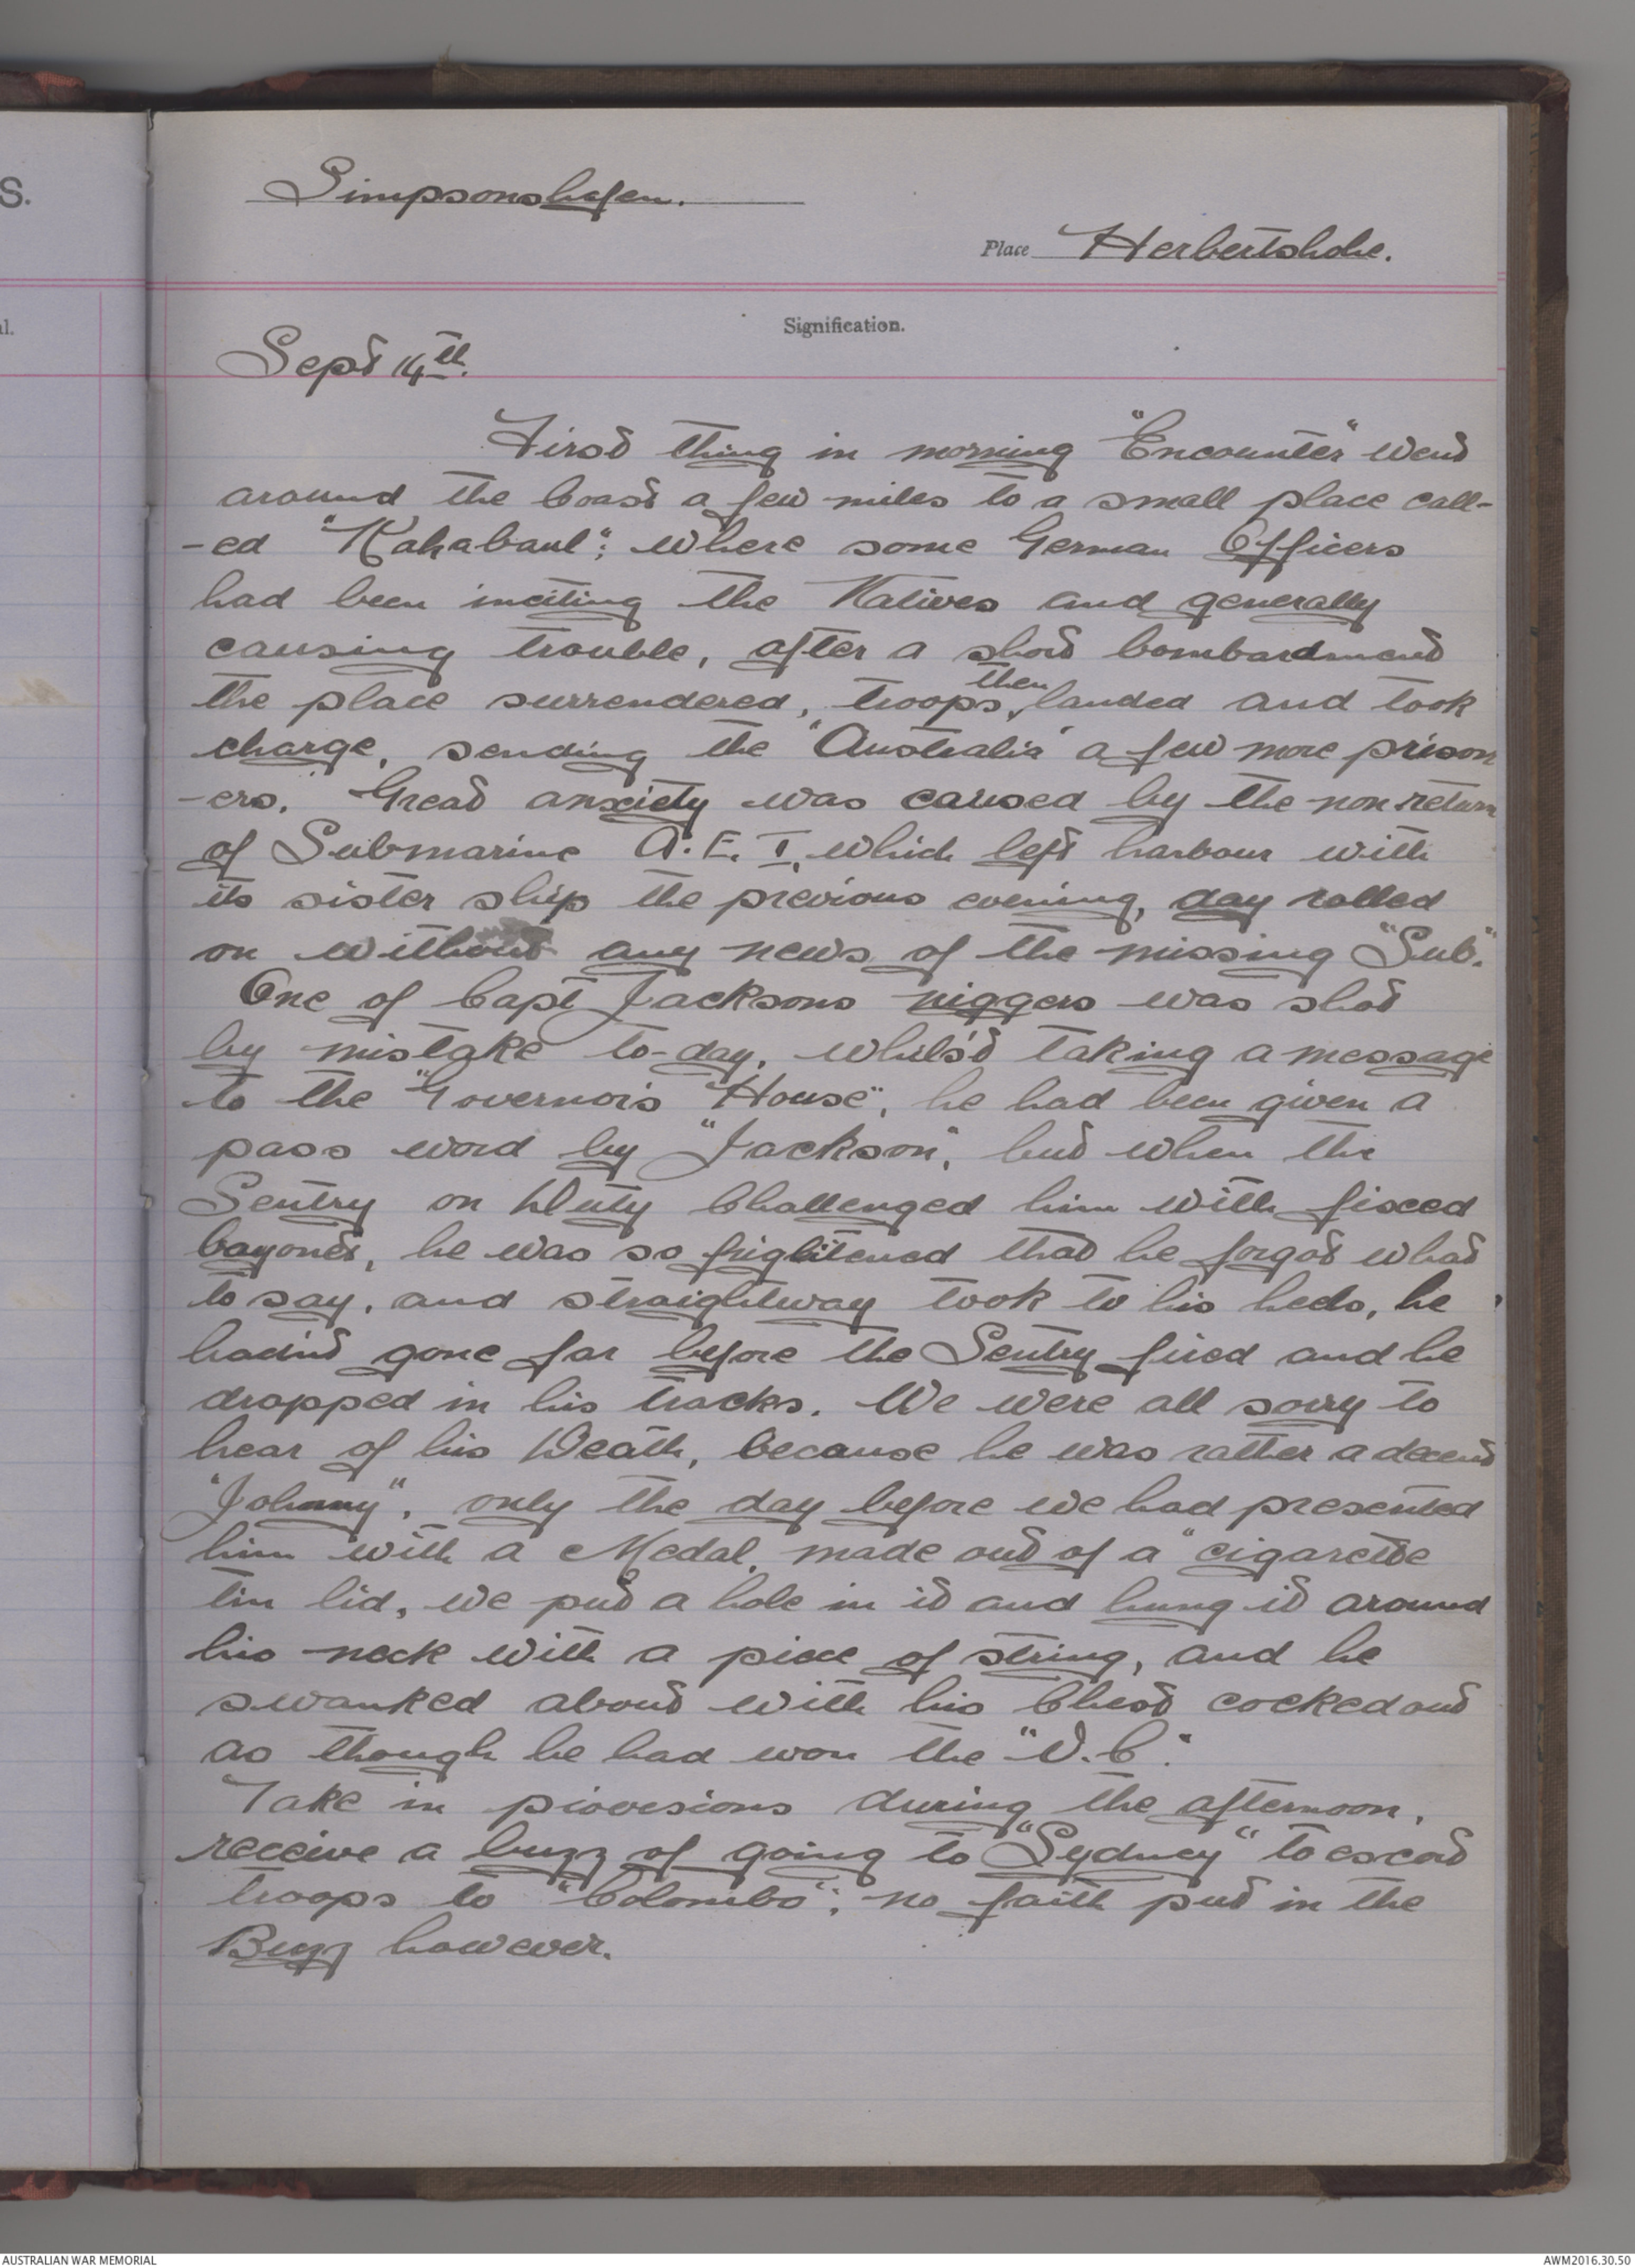 S.
Simpsonshafen.
Place Herbertshohe.
al.
Signification.
Sept 14th.
First thing in morning "Encounter" went
around the Coast a few miles to a small place call-
-ed "Kahabaul"; where some German Officers
had been inciting the Natives and generally
causing trouble, after a short bombardment
the place surrendered, troops then landed and took
charge, sending the "Australia" a few more prison
-ers. Great anxiety was caused by the non return
of Submarine A.E. I, which left harbour with
its sister ship the previous evening, day rolled
on without any news of the missing "Sub."
One of Capt Jacksons niggers was shot
by mistake to-day, whils't taking a message
to the "Governors House", he had been given a
pass word by "Jackson", but when the
Sentry on Duty Challenged him with fixed
bayonet, he was so frightened that he forgot what
to say, and straightway took to his heels, he
hadn't gone far before the Sentry fired and he
dropped in his tracks. We were all sorry to
hear of his Death, because he was rather a decent
"Johnny", only the day before we had presented
him with a Medal, made out of a "cigarette
tin lid, we put a hole in it and hung it around
his neck with a piece of string, and he
swanked about with his Chest cocked out
as though he had won the "V.C."
Take in provisions during the afternoon,
receive a buzz of going to "Sydney" to escort
troops to "Colombo"; no faith put in the
Buzz however.
AUSTRALIAN WAR MEMORIAL
AWM2016.30.50